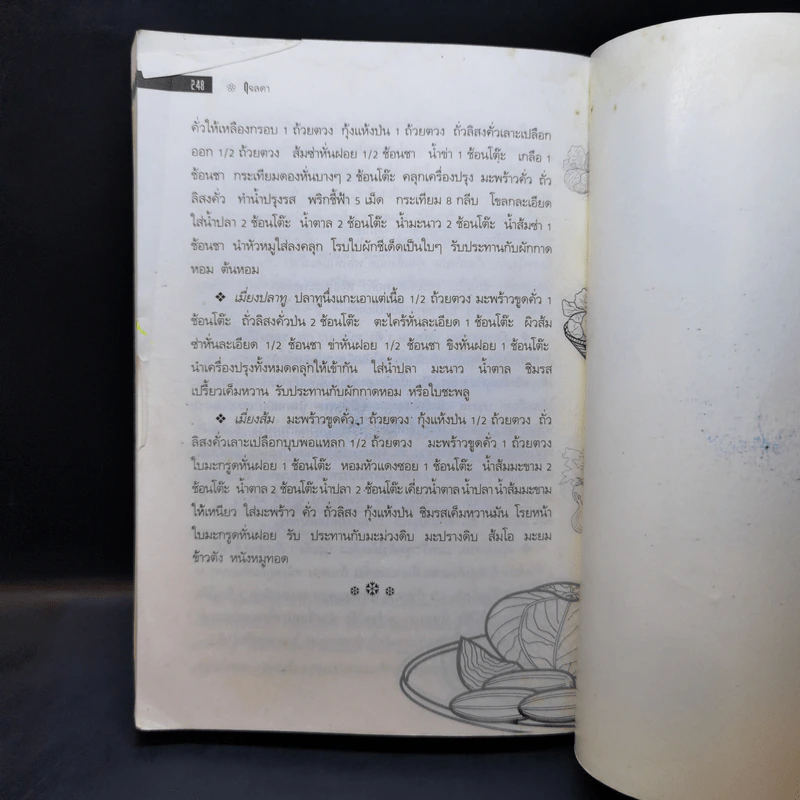 248 ดุจลดา
คั่วให้เหลืองกรอบ 1 ถ้วยตวง กุ้งแห้งป่น 1 ถ้วยตวง ถั่วลิสงคั่วเลาะเปลือก
ออก 1/2 ถ้วยตวง ส้มซ่าหั่นฝอย 1/2 ช้อนชา น้ำข่า 1 ช้อนโต๊ะ เกลือ 1
ช้อนชา กระเทียมดองหั่นบางๆ 2 ช้อนโต๊ะ คลุกเครื่องปรุง มะพร้าวคั่ว ถั่ว
ลิสงคั่ว ทำน้ำปรุงรส พริกชี้ฟ้า 5 เม็ด กระเทียม 8 กลีบ โขลกละเอียด
ใส่น้ำปลา 2 ช้อนโต๊ะ น้ำตาล 2 ช้อนโต๊ะ น้ำมะนาว 2 ช้อนโต๊ะ น้ำส้มซ่า 1
ช้อนชา นำหัวหมูใส่ลงคลุก โรบใบผักชีเด็ดเป็นใบๆ รับประทานกับผักกาด
หอม ต้นหอม
❖ เมี่ยงปลาทู ปลาทูนึ่งแกะเอาแต่เนื้อ 1/2 ถ้วยตวง มะพร้าวขูดคั่ว 1
ช้อนโต๊ะ ถั่วลิสงคั่วป่น 2 ช้อนโต๊ะ ตะไคร้หั่นละเอียด 1 ช้อนโต๊ะ ผิวส้ม
ซ่าหั่นละเอียด 1/2 ช้อนชา ข่าหั่นฝอย 1/2 ช้อนชา ขิงหั่นฝอย 1 ช้อนโต๊ะ
นำเครื่องปรุงทั้งหมดคลุกให้เข้ากัน ใส่น้ำปลา มะนาว น้ำตาล ชิมรส
เปรี้ยวเค็มหวาน รับประทานกับผักกาดหอม หรือใบชะพลู
❖ เมี่ยงส้ม มะพร้าวขูดคั่ว 1 ถ้วยตวง กุ้งแห้งป่น 1/2 ถ้วยตวง ถั่ว
ลิสงคั่วเลาะเปลือกบุบพอแหลก 1/2 ถ้วยตวง มะพร้าวขูดคั่ว 1 ถ้วยตวง
ใบมะกรูดหั่นฝอย 1 ช้อนโต๊ะ หอมหัวแดงซอย 1 ช้อนโต๊ะ น้ำส้มมะขาม 2
ช้อนโต๊ะ น้ำตาล 2 ช้อนโต๊ะ น้ำปลา 2 ช้อนโต๊ะ เคี่ยวน้ำตาล น้ำปลา น้ำส้มมะขาม
ให้เหนียว ใส่มะพร้าว คั่ว ถั่วลิสง กุ้งแห้งป่น ชิมรสเค็มหวานมัน โรยหน้า
ใบมะกรูดหั่นฝอย รับ ประทานกับมะม่วงดิบ มะปรางดิบ ส้มโอ มะยม
ข้าวตัง หนังหมูทอด